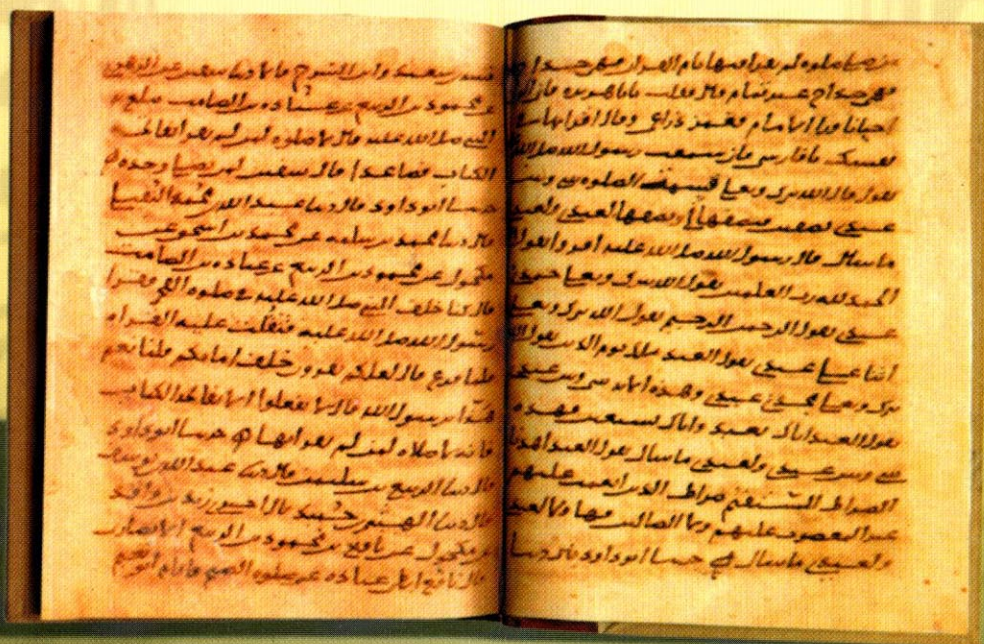 من صلى صلوه لم يقرا فيها بام القران فهي خداج
فهي خداج غير تمام قال قلت يابا هريره فاني
احيانا ورا الامام فغمز ذراعي وقال اقرا بها في
نفسك يا فارسي فاني سمعت رسول الله صلى الله
يقول قال الله تبرك وتعلى قسمت الصلوه بيني وبين
عبدي نصفين فنصفها لي ونصفها لعبدي ولعبدي
ما سال قال رسول الله صلى الله عليه اقروا يقول
الحمد لله رب العلمين يقول الله تبرك وتعلى حمدني
عبدي يقول الرحمن الرحيم يقول الله تبرك وتعلى
اثنا علي عبدي يقول العبد ملك يوم الدين يقول الله
تبرك وتعلى مجدني عبدي وهذه الايه بيني وبين عبدي
يقول العبد اياك نعبد واياك نستعين فهذه
بيني وبين عبدي ولعبدي ما سال يقول العبد اهدنا
الصراط المستقيم صراط الذين انعمت عليهم
غير المغضوب عليهم ولا الضالين فهولا لعبدي
ولعبدي ما سال حدثنا ابو داود قال دثنا
قتيبه بن سعيد وابن السرح قالا دثنا سفين عن الزهري
عن محمود بن الربيع عن عباده بن الصامت يبلغ به
النبي صلى الله عليه قال لا صلوه لمن لم يقرا بفاتحه
الكتاب فصاعدا قال سفين لمن يصلي وحده
حدثنا ابو داود قال دثنا عبد الله بن محمد النفيلي
قال دثنا محمد بن سلمه عن محمد بن اسحق عن
مكحول عن محمود بن الربيع عن عباده بن الصامت
قال كنا خلف النبي صلى الله عليه في صلوه الفجر فقرا
رسول الله صلى الله عليه فثقلت عليه القراه
فلما فرغ قال لعلكم تقرون خلف امامكم قلنا نعم
هذا يرسول الله قال لا تفعلوا الا بفاتحه الكتاب
فانه لا صلاه لمن لم يقرا بها حدثنا ابو داود
قال دثنا الربيع بن سليمن قال دثنا عبد الله بن يوسف
قال دثنا الهيثم بن حميد قال اخبرني زيد بن واقد
عن مكحول عن نافع بن محمود بن الربيع الانصاري
قال نافع ابطا عباده عن صلوه الصبح فاقام ابو نعيم